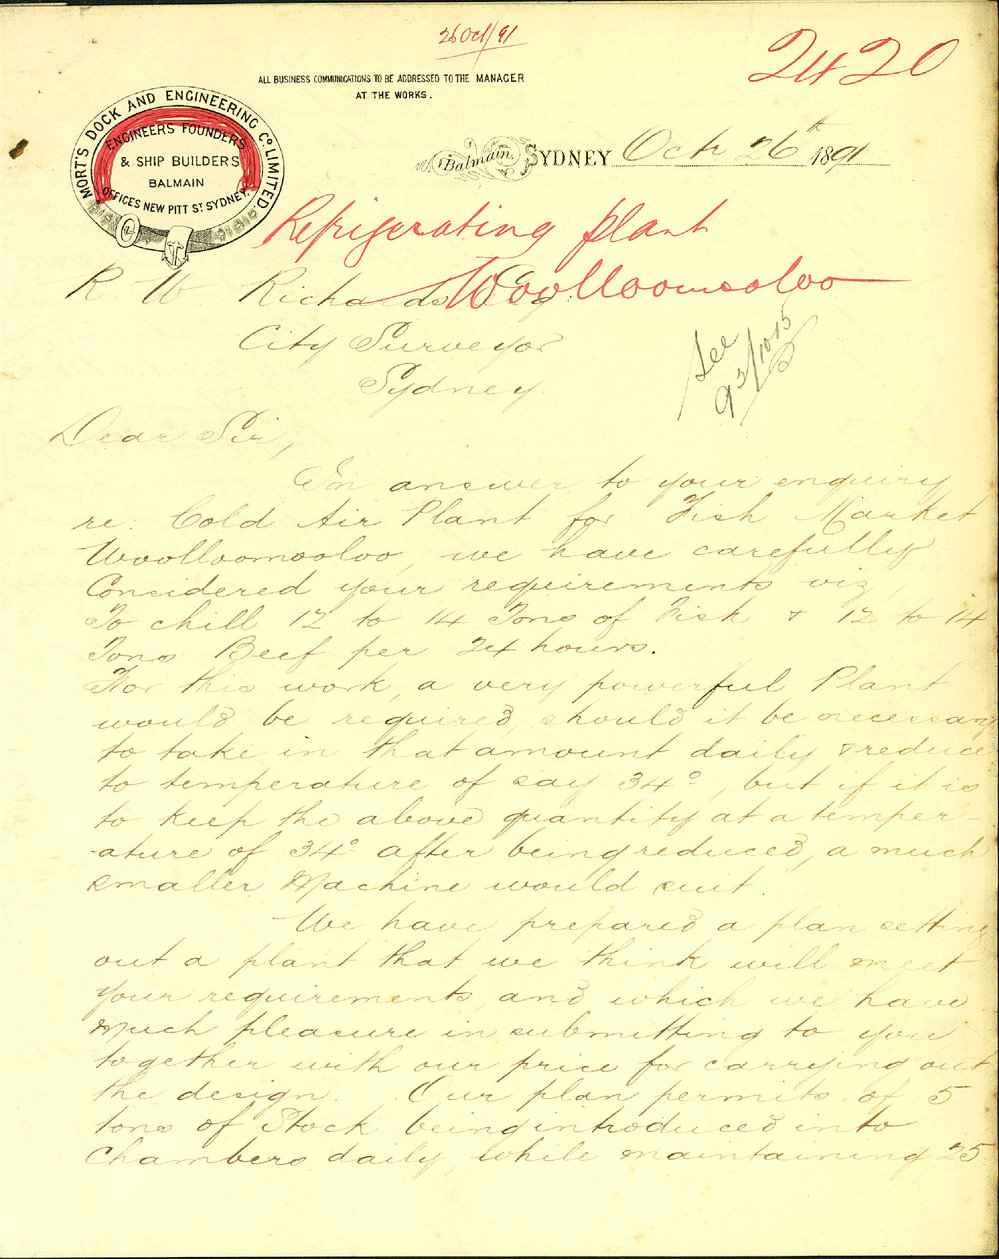 26 Oct/91
2420
ALL BUSINESS COMMUNICATIONS TO BE ADDRESSED TO THE MANAGER
AT THE WORKS.
MORT'S DOCK AND ENGINEERING Co LIMITED.
ENGINEERS FOUNDERS
& SHIP BUILDERS
BALMAIN
OFFICES NEW PITT ST. SYDNEY.
Balmain. SYDNEY Oct 26th 1891
Refrigerating plant
Woolloomooloo
R. W Richards Esq.
City Surveyor
Sydney.
See
93/1015
Dear Sir,
In answer to your enquiry
re. Cold Air Plant for Fish Market
Woolloomooloo, we have carefully
Considered your requirements viz,
To chill 12 to 14 Tons of Fish & 12 to 14
Tons Beef per 24 hours.
For this work, a very powerful Plant
would be required, should it be necessary
to take in that amount daily, & reduce
to temperature of say 34°, but if it is
to keep the above quantity at a temper-
ature of 34° after being reduced, a much
smaller Machine would suit.
We have prepared a plan setting
out a plant that we think will meet
your requirements, and which we have
much pleasure in submitting to you
together with our price for carrying out
the design. Our plan permits of 5
tons of Stock being introduced into
Chambers daily, while maintaining 25